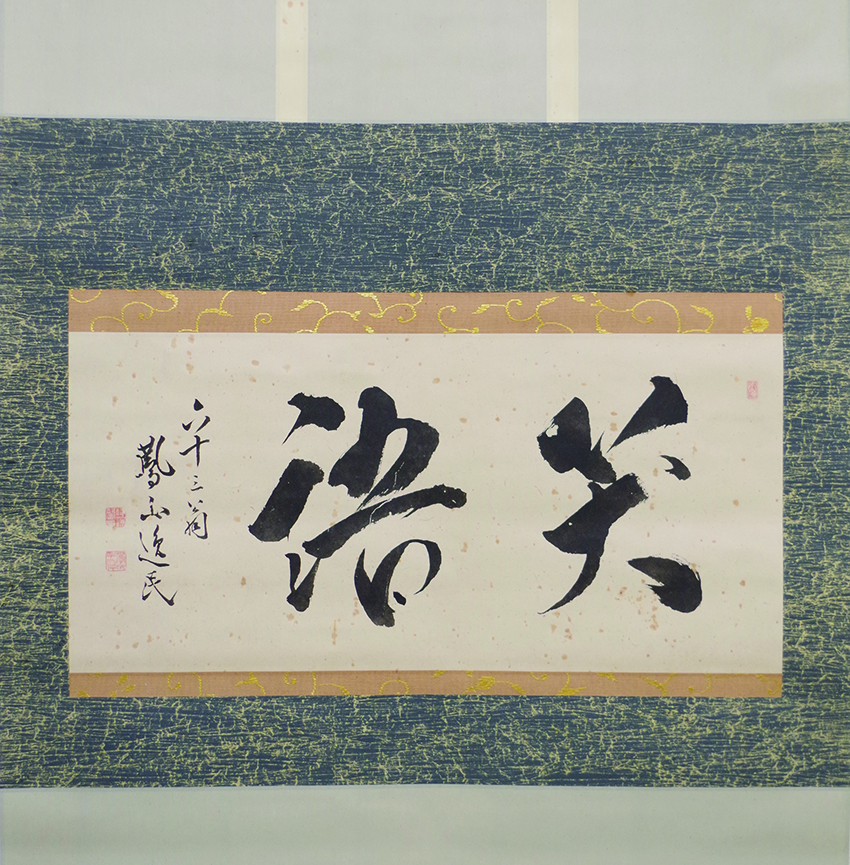 笑語
六十三翁
逸民